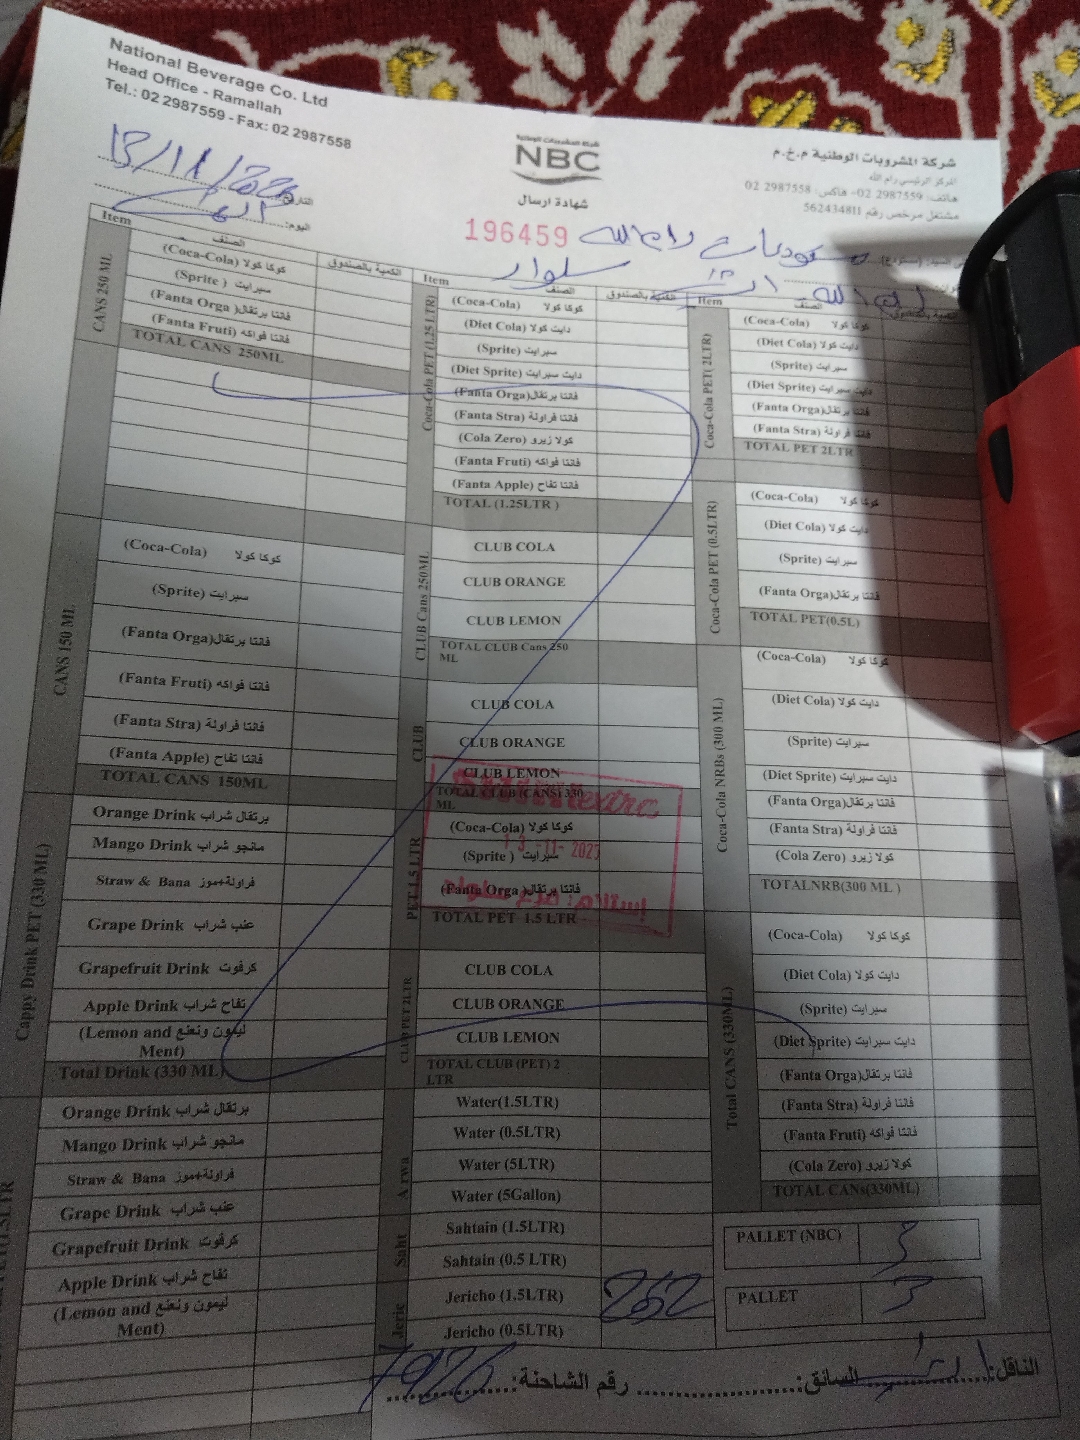 National Beverage Co. Ltd
Head Office - Ramallah
Tel.: 02 2987559 - Fax: 02 2987558
شركة المشروبات الوطنية
NBC
شهادة ارسال
196459
شركة المشروبات الوطنية م.خ.م
المركز الرئيسي رام الله
هاتف: 2987559 02- فاكس: 2987558 02
مشتغل مرخص رقم 562434811
التاريخ:
اليوم:
رام الله
سلواد
Item
الصنف
الكمية بالصندوق
CANS 250 ML
(Coca-Cola) كوكا كولا
(Sprite ) سبرايت
(Fanta Orga) فانتا برتقال
(Fanta Fruti) فانتا فواكه
TOTAL CANS 250ML
CANS 150 ML
(Coca-Cola) كوكا كولا
(Sprite) سبرايت
(Fanta Orga) فانتا برتقال
(Fanta Fruti) فانتا فواكه
(Fanta Stra) فانتا فراولة
(Fanta Apple) فانتا تفاح
TOTAL CANS 150ML
Cappy Drink PET (330 ML)
Orange Drink برتقال شراب
Mango Drink مانجو شراب
Straw & Bana فراولة+موز
Grape Drink عنب شراب
Grapefruit Drink كرفوت
Apple Drink تفاح شراب
(Lemon and ليمون ونعنع
Ment)
Total Drink (330 ML)
Orange Drink برتقال شراب
Mango Drink مانجو شراب
Straw & Bana فراولة+موز
Grape Drink عنب شراب
Grapefruit Drink كرفوت
Apple Drink تفاح شراب
(Lemon and ليمون ونعنع
Ment)
Item
الصنف
الكمية بالصندوق
Coca-Cola PET (1.25 LTR)
(Coca-Cola) كوكا كولا
(Diet Cola) دايت كولا
(Sprite) سبرايت
(Diet Sprite) دايت سبرايت
(Fanta Orga) فانتا برتقال
(Fanta Stra) فانتا فراولة
(Cola Zero) كولا زيرو
(Fanta Fruti) فانتا فواكه
(Fanta Apple) فانتا تفاح
TOTAL (1.25LTR )
CLUB Cans 250ML
CLUB COLA
CLUB ORANGE
CLUB LEMON
TOTAL CLUB Cans 250
ML
CLUB
CLUB COLA
CLUB ORANGE
CLUB LEMON
TOTAL CLUB (CANS) 330
ML
PET 1.5 LTR
(Coca-Cola) كوكا كولا
(Sprite ) سبرايت
(Fanta Orga) فانتا برتقال
TOTAL PET 1.5 LTR
CLUB PET 2LTR
CLUB COLA
CLUB ORANGE
CLUB LEMON
TOTAL CLUB (PET) 2
LTR
Arwa
Water(1.5LTR)
Water (0.5LTR)
Water (5LTR)
Water (5Gallon)
Saht
Sahtain (1.5LTR)
Sahtain (0.5 LTR)
Jeric
Jericho (1.5LTR)
252
Jericho (0.5LTR)
Item
الصنف
Coca-Cola PET( 2LTR)
(Coca-Cola) كوكا كولا
(Diet Cola) دايت كولا
(Sprite) سبرايت
(Diet Sprite) دايت سبرايت
(Fanta Orga) فانتا برتقال
(Fanta Stra) فانتا فراولة
TOTAL PET 2LTR
Coca-Cola PET (0.5LTR)
(Coca-Cola) كوكا كولا
(Diet Cola) دايت كولا
(Sprite) سبرايت
(Fanta Orga) فانتا برتقال
TOTAL PET(0.5L)
Coca-Cola NRBs (300 ML)
(Coca-Cola) كوكا كولا
(Diet Cola) دايت كولا
(Sprite) سبرايت
(Diet Sprite) دايت سبرايت
(Fanta Orga) فانتا برتقال
(Fanta Stra) فانتا فراولة
(Cola Zero) كولا زيرو
TOTALNRB(300 ML )
Total CANS (330ML)
(Coca-Cola) كوكا كولا
(Diet Cola) دايت كولا
(Sprite) سبرايت
(Diet Sprite) دايت سبرايت
(Fanta Orga) فانتا برتقال
(Fanta Stra) فانتا فراولة
(Fanta Fruti) فانتا فواكه
(Cola Zero) كولا زيرو
TOTAL CANs(330ML)
PALLET (NBC) 3
PALLET 3
extra
13 -11- 2025
إستلام: فرع سلواد
الناقل: السائق: رقم الشاحنة: 1926